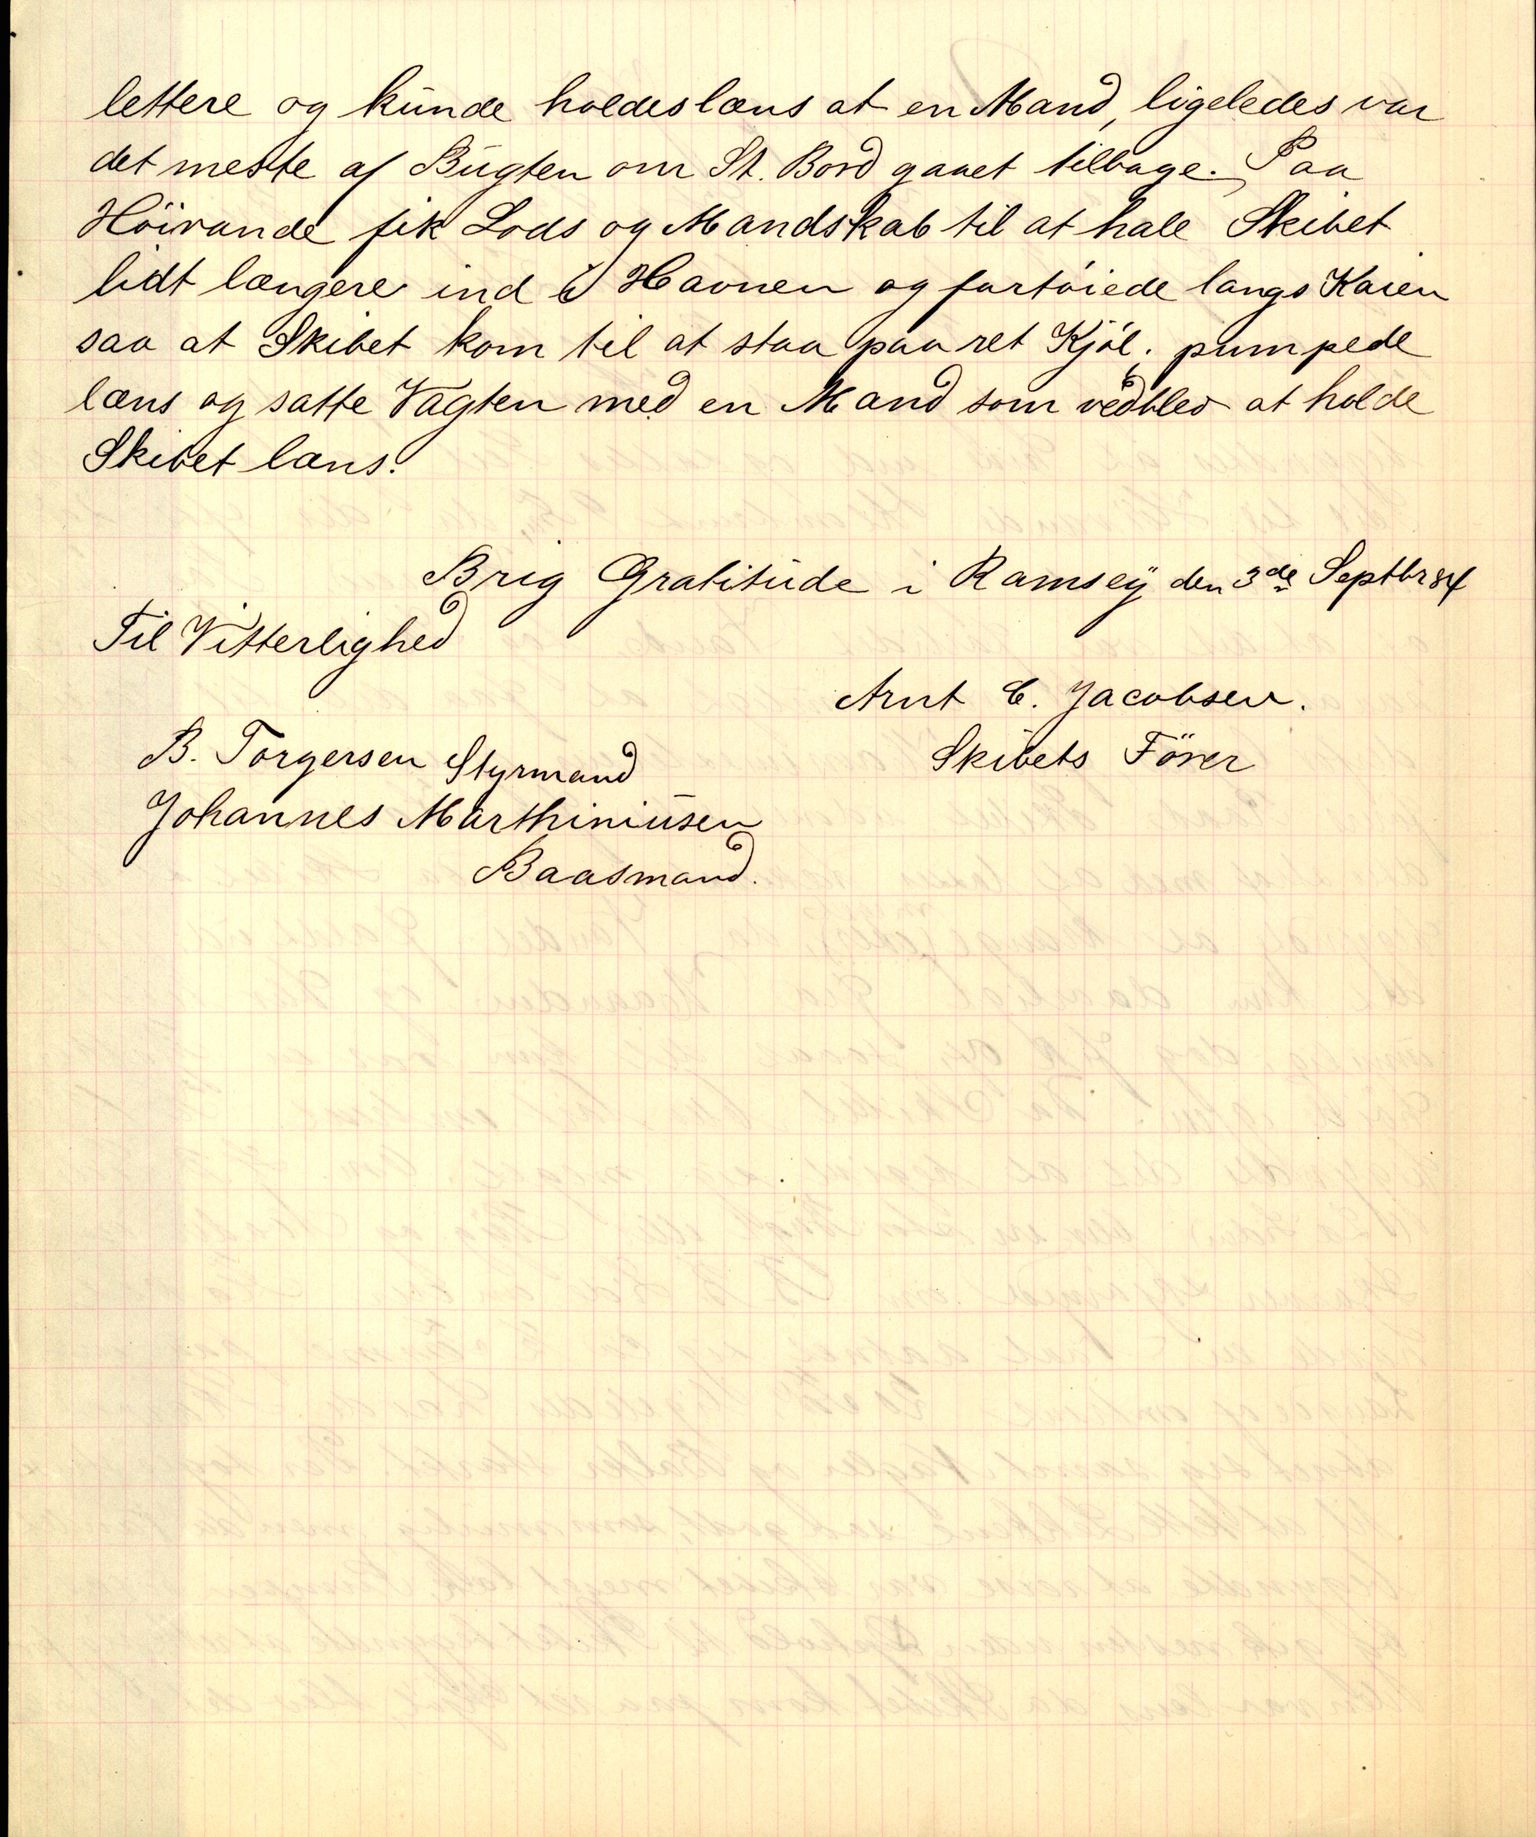 lettere og kunde holdes læns at en Mand, ligeledes var
det meste af Bugten om St. Bord gaaet tilbage. Paa
Höivande fik Lods og Mandskab til at hale Skibet
lidt længere ind i Havnen og fortöiede langs Kaien
saa at Skibet kom til at staa paa ret Kjöl. pumpede
læns og satte Vagten med en Mand som vedblev at holde
Skibet læns.
Brig Gratitude i Ramsey den 3de Septbr 84
Til Vitterlighed
Arnt C. Jacobsen.
Skibets Förer
B. Torgersen Styrmand
Johannes Marthiniusen
Baasmand.